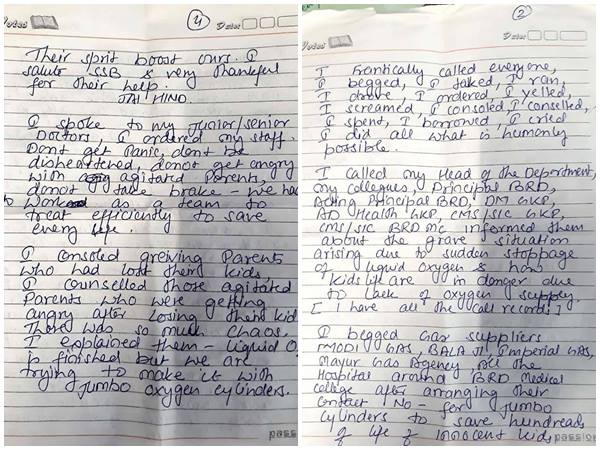 Notes
4
Date
Their sprit boost ours. I
salute SSB & very thankful
for their help.
JAI HIND.
I spoke to my junior/senior
Doctors, I ordered my staff.
Dont get Panic, dont be
disheartened, donot get angry
with agitated Parents,
donot take brake - we ha
to work as a team to
treat efficiently to save
every life.
I consoled greiving Parents
who had lost their kids,
I counselled those agitated
Parents who were getting
angry after losing their kid
There was so much chaos.
I explained them - liquid O2
is finished but we are
trying to make it with
jumbo oxygen cylinders.
pass
Notes
2
Date
I frantically called everyone,
I begged, I talked, I ran,
I drove, I ordered, I yelled,
I screamed, I consoled, I conselled,
I spent, I borrowed, I cried
I did all what is humanly
possible.
I called my Head of the Department,
my collegues, Principal BRD,
Acting Principal BRD, DM GKP,
AD Health GKP, CMS/SIC GKP,
CMS/SIC BRD MC informed them
about the grave situation
arising due to sudden stoppage
of liquid oxygen & how
kids life are in danger due
to lack of oxygen supply.
[I have all the call records]
I begged Gas suppliers
MODI GAS, BALA JI, Imperial GAS,
Mayur Gas Agency, all the
Hospital around BRD Medical
college after arranging their
contact No - for jumbo
cylinders to save hundreads
of life of innocent kids.
passion